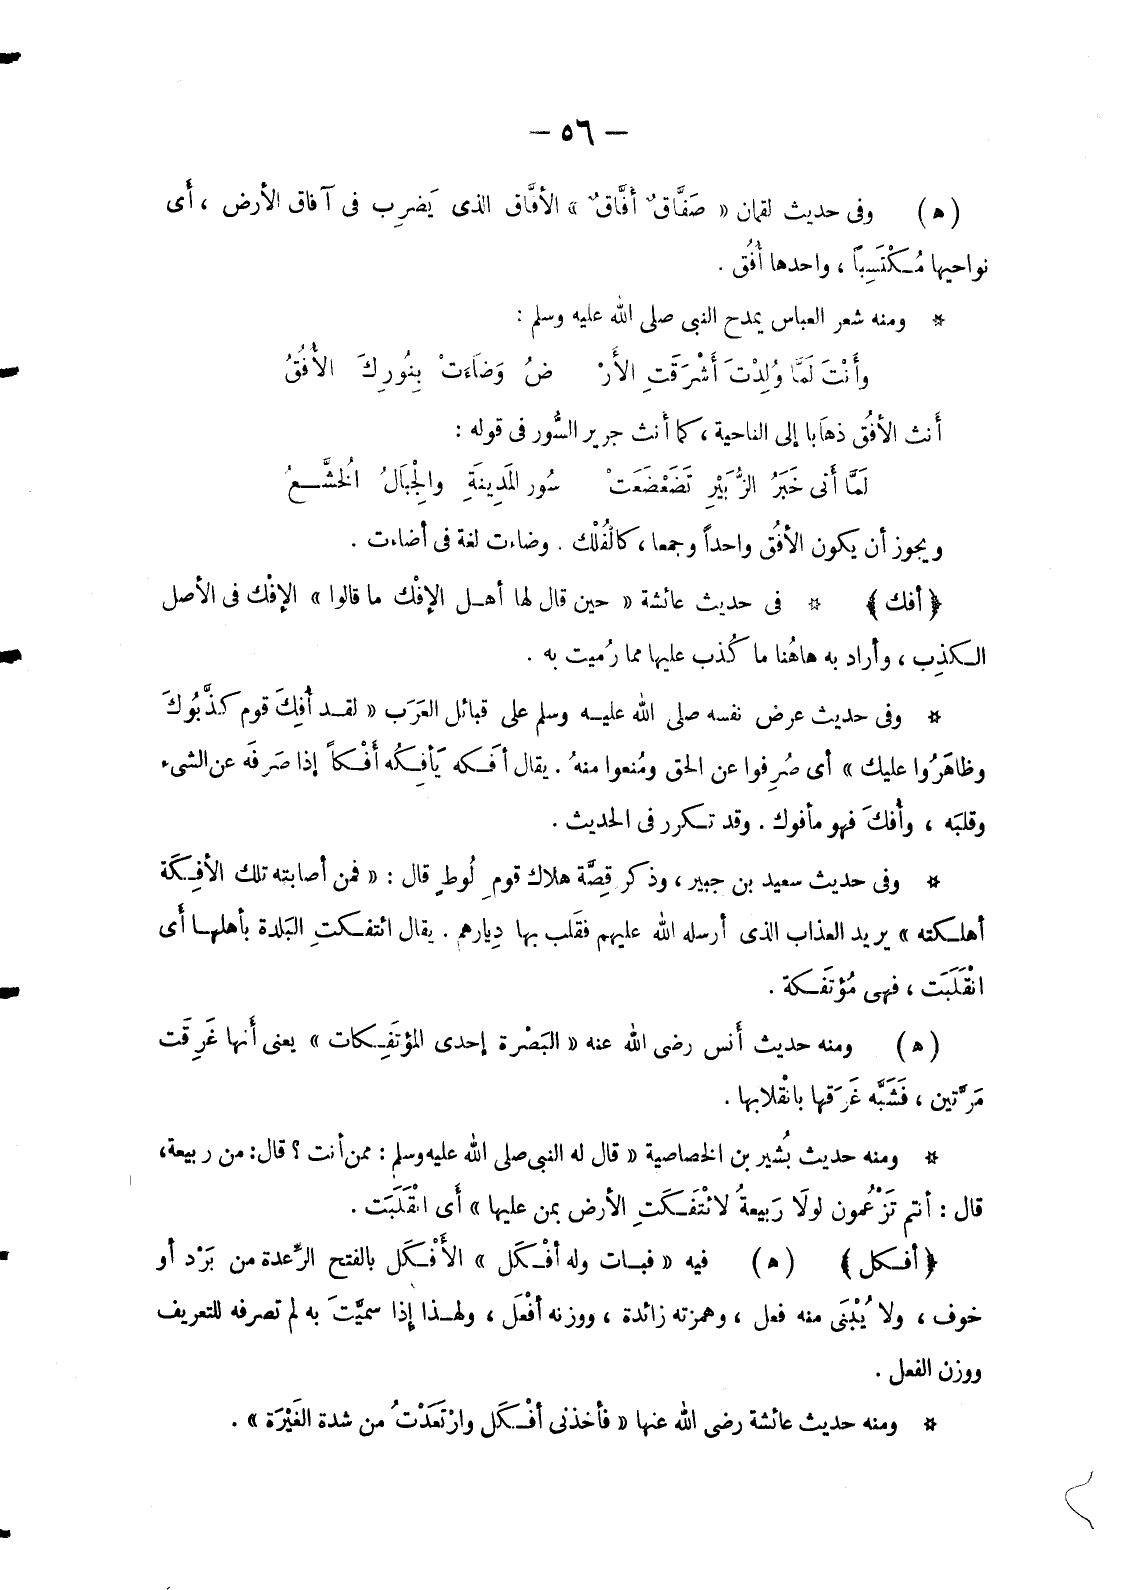 — ٥٦ —
(ه) وفى حديث لقمان « صَفَّاقٌ أَفَّاقٌ » الأفَّاق الذى يَضرِب فى آفاق الأرض ، أَى
نواحيها مُكْتَسِباً ، واحدها أُفُق .
* ومنه شعر العباس يمدح النبى صلى الله عليه وسلم :
وأَنْتَ لَمَّا وُلِدْتَ أَشْرَقَتِ الأَرْ ضُ وَضَاءَتْ بِنُورِكَ الأُفُقُ
أَنث الأفُق ذهَابا إلى الناحية ، كما أنث جرير السُّور فى قوله :
لَمَّا أَتى خَبَرُ الزُّبَيْرِ تَضَعْضَعَتْ سُور المَدِينَةِ والْجِبَالُ الْخشَّعُ
ويجوز أن يكون الأفُق واحداً وجمعا ، كالْفُلْك . وضاءت لغة فى أضاءت .
﴿ أفك ﴾ * فى حديث عائشة « حين قال لها أهل الإفْك ما قالوا » الإفْك فى الأصل
الكذِب ، وأراد به هاهُنا ما كُذب عليها مما رُميت به .
* وفى حديث عرض نفسه صلى الله عليه وسلم على قبائل العَرَب « لقد أُفِكَ قوم كذَّبُوكَ
وظاهَرُوا عليك » أى صُرِفوا عن الحق ومُنعوا منهُ . يقال أفَكه يَأفِكُه أَفْكاً إذا صَرفَه عن الشىء
وقلبَه ، وأُفكَ فهو مأفوك . وقد تكرر فى الحديث .
* وفى حديث سعيد بن جبير ، وذكر قِصَّة هلاك قومِ لُوطٍ قال : « فمن أصابته تلك الأفِكَة
أهلكته » يريد العذاب الذى أرسله الله عليهم فقَلب بها دِيارهم . يقال ائتفكتِ البَلدة بأهلها أَى
انْقَلَبَت ، فهى مُؤتَفَكة .
(ه) ومنه حديث أَنس رضى الله عنه « البَصْرة إحدى المؤتَفِكات » يعنى أَنها غَرِقَت
مَرَّتين ، فَشَبَّه غَرَقها بانْقلابها .
* ومنه حديث بُشير بن الخصاصية « قال له النبى صلى الله عليه وسلم : ممن أنت ؟ قال: من ربيعة،
قال : أنتم تَزْعُمون لولَا رَبيعةُ لائْتَفَكَتِ الأرض بمن عليها » أَى انْقَلَبَت .
﴿ أفكل ﴾ (ه) فيه « فبات وله أفْكَل » الأَفْكَل بالفتح الرِّعدة من بَرْد أو
خوف ، ولا يُبْنَى منه فعل ، وهمزته زائدة ، ووزنه أفْعَل ، ولهذا إذا سميَّتَ به لم تصرفه للتعريف
ووزن الفعل .
* ومنه حديث عائشة رضى الله عنها « فأخذنى أفْكَل وارْتَعَدْتُ من شدة الغَيْرَة » .